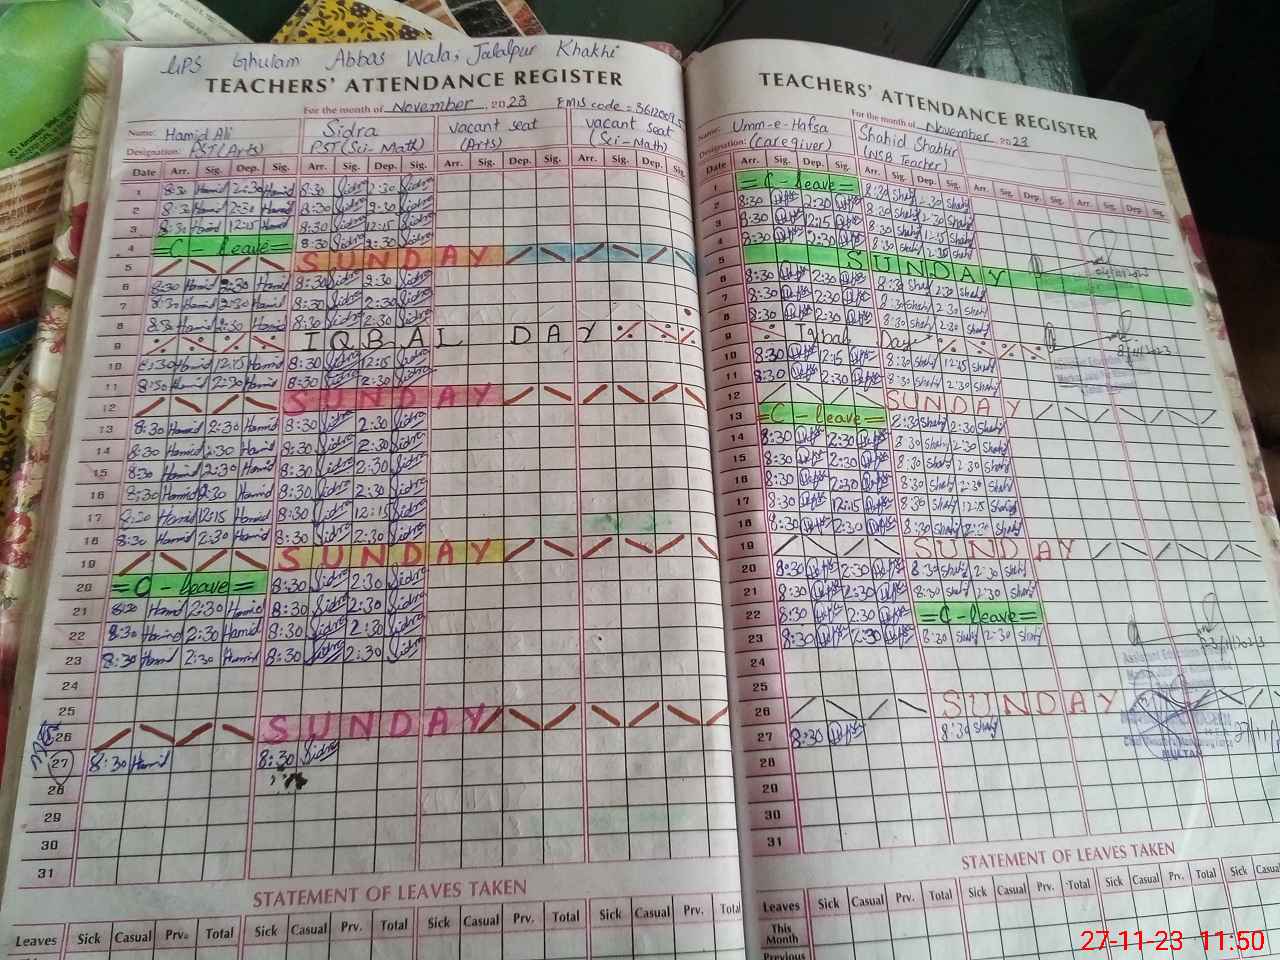 GPS Ghulam Abbas Wala, Jalalpur Khakhi
TEACHERS' ATTENDANCE REGISTER
For the month of November 2023 EMIS code =
Name: Hamid Ali Sidra vacant seat vacant seat
Designation: PST (Arts) PST (Sci-Math) (Arts) (Sci-Math)
Date Arr. Sig. Dep. Sig. Arr. Sig. Dep. Sig. Arr. Sig. Dep. Sig. Arr. Sig. Dep. Sig.
1 8:30 Hamid 2:30 Hamid 8:30 Sidra 2:30 Sidra
2 8:30 Hamid 2:30 Hamid 8:30 Sidra 2:30 Sidra
3 8:30 Hamid 12:15 Hamid 8:30 Sidra 12:15 Sidra
4 =C leave= 8:30 Sidra 2:30 Sidra
5 SUNDAY
6 8:30 Hamid 2:30 Hamid 8:30 Sidra 2:30 Sidra
7 8:30 Hamid 2:30 Hamid 8:30 Sidra 2:30 Sidra
8 8:30 Hamid 2:30 Hamid 8:30 Sidra 2:30 Sidra
9 IQBAL DAY
10 8:30 Hamid 12:15 Hamid 8:30 Sidra 12:15 Sidra
11 8:30 Hamid 2:30 Hamid 8:30 Sidra 2:30 Sidra
12 SUNDAY
13 8:30 Hamid 2:30 Hamid 8:30 Sidra 2:30 Sidra
14 8:30 Hamid 2:30 Hamid 8:30 Sidra 2:30 Sidra
15 8:30 Hamid 2:30 Hamid 8:30 Sidra 2:30 Sidra
16 8:30 Hamid 2:30 Hamid 8:30 Sidra 2:30 Sidra
17 8:30 Hamid 12:15 Hamid 8:30 Sidra 12:15 Sidra
18 8:30 Hamid 2:30 Hamid 8:30 Sidra 2:30 Sidra
19 SUNDAY
20 =C-leave= 8:30 Sidra 2:30 Sidra
21 8:30 Hamid 2:30 Hamid 8:30 Sidra 2:30 Sidra
22 8:30 Hamid 2:30 Hamid 8:30 Sidra 2:30 Sidra
23 8:30 Hamid 2:30 Hamid 8:30 Sidra 2:30 Sidra
24
25
26 SUNDAY
27 8:30 Hamid 8:30 Sidra
28
29
30
31
STATEMENT OF LEAVES TAKEN
Leaves Sick Casual Prv. Total Sick Casual Prv. Total Sick Casual Prv. Total
TEACHERS' ATTENDANCE REGISTER
For the month of November 2023
Name: Umm-e-Hafsa Shahid Shabbir
Designation: (caregiver) (NSB Teacher)
Date Arr. Sig. Dep. Sig. Arr. Sig. Dep. Sig. Arr. Sig. Dep. Sig. Arr. Sig. Dep. Sig.
1 =C-leave= 8:30 Shahid 2:30 Shahid
2 8:30 2:30 8:30 Shahid 2:30 Shahid
3 8:30 12:15 8:30 Shahid 12:15 Shahid
4 8:30 2:30 8:30 Shahid 2:30 Shahid
5 SUNDAY
6 8:30 2:30 8:30 Shahid 2:30 Shahid
7 8:30 2:30 8:30 Shahid 2:30 Shahid
8 8:30 2:30 8:30 Shahid 2:30 Shahid
9 Iqbal Day
10 8:30 12:15 8:30 Shahid 12:15 Shahid
11 8:30 2:30 8:30 Shahid 2:30 Shahid
12 SUNDAY
13 =C-leave= 2:30 Shahid 2:30 Shahid
14 8:30 2:30 8:30 Shahid 2:30 Shahid
15 8:30 2:30 8:30 Shahid 2:30 Shahid
16 8:30 2:30 8:30 Shahid 2:30 Shahid
17 8:30 12:15 8:30 Shahid 12:15 Shahid
18 8:30 2:30 8:30 Shahid Shahid
19 SUNDAY
20 8:30 2:30 8:30 Shahid 2:30 Shahid
21 8:30 2:30 8:30 Shahid 2:30 Shahid
22 8:30 2:30 =C-leave=
23 8:30 2:30 8:30 Shahid 2:30 Shahid
24
25
26 SUNDAY
27 8:30 8:30 Shahid
28
29
30
31
MULTAN
STATEMENT OF LEAVES TAKEN
Leaves Sick Casual Prv. Total Sick Casual Prv. Total Sick Casual Prv. Total Sick Casual
This Month
Previous
27-11-23 11:50